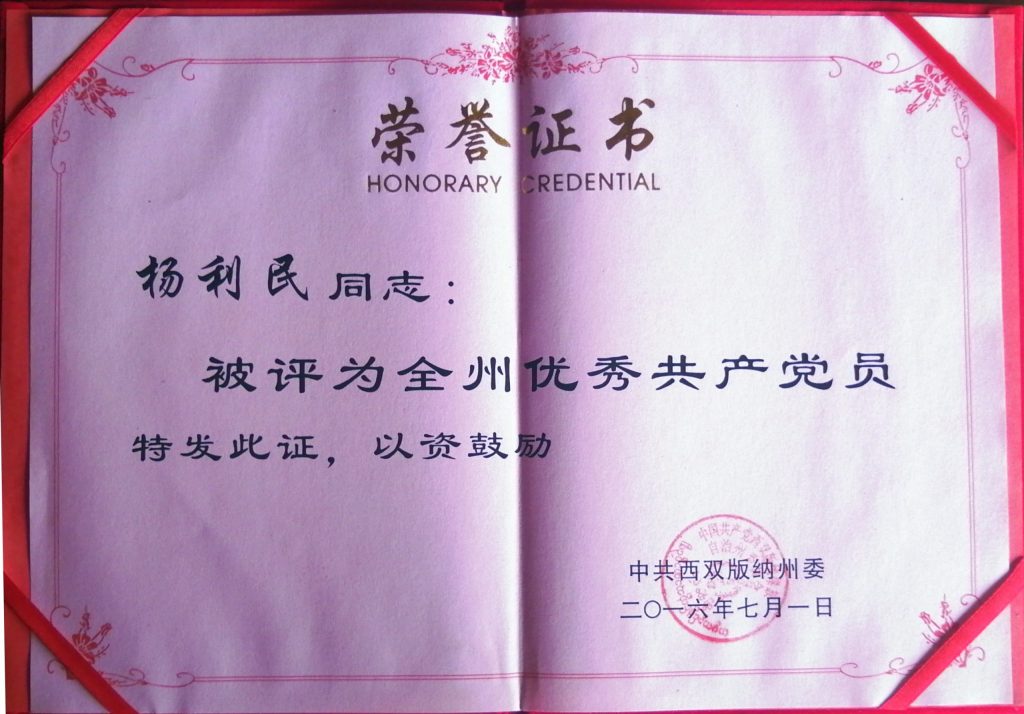 荣誉证书
HONORARY CREDENTIAL
杨利民同志：
被评为全州优秀共产党员
特发此证，以资鼓励
中共西双版纳州委
二〇一六年七月一日
中国共产党西双版纳
自治州